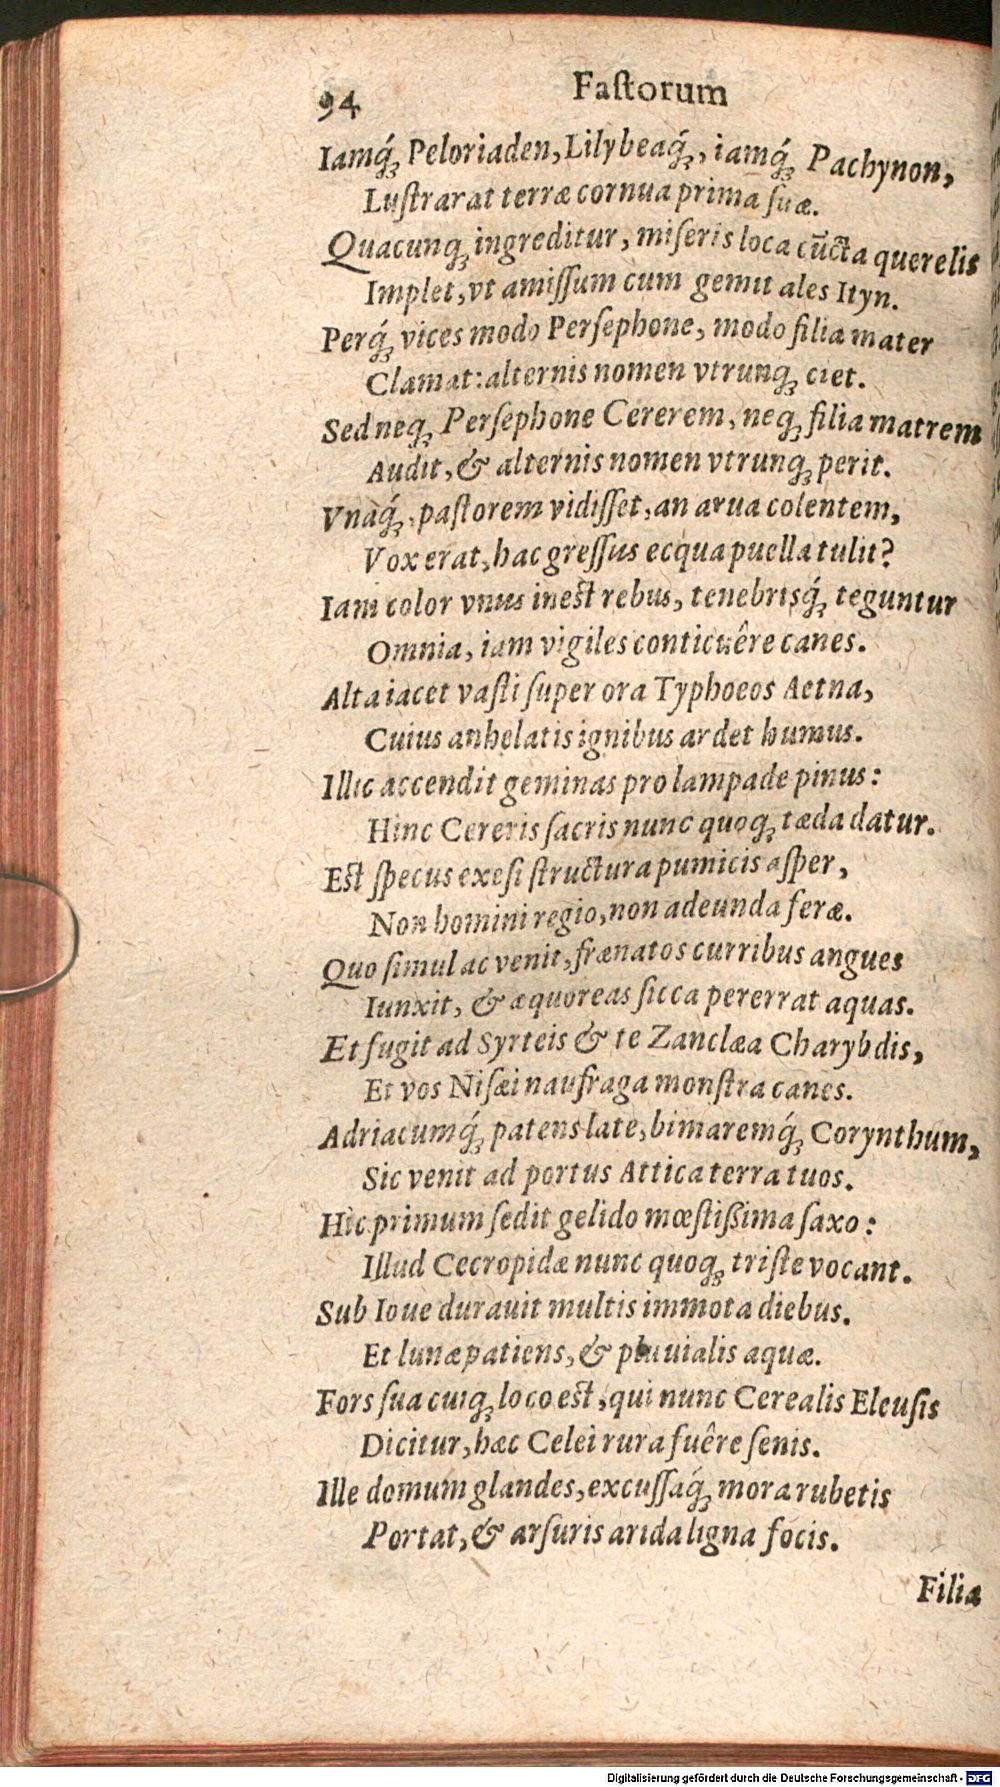 94 Faſtorum
Iamq́ꝫ Peloriaden, Lilybeaq́ꝫ, iamq́ꝫ Pachynon,
Luſtrarat terræ cornua prima ſuæ.
Quacunqꝫ ingreditur, miſeris loca cūcta querelis
Implet, vt amiſſum cum gemit ales Ityn.
Perq́ꝫ vices modo Perſephone, modo filia mater
Clamat: alternis nomen vtrunqꝫ ciet.
Sed neqꝫ Perſephone Cererem, neqꝫ filia matrem
Audit, & alternis nomen vtrunqꝫ perit.
Vnaq́ꝫ, paſtorem vidiſſet, an arua colentem,
Vox erat, hac greſſus ecqua puella tulit?
Iam color vnus ineſt rebus, tenebrisq́ꝫ teguntur
Omnia, iam vigiles conticuêre canes.
Alta iacet vaſti ſuper ora Typhoeos Aetna,
Cuius anhelatis ignibus ardet humus.
Illic accendit geminas pro lampade pinus:
Hinc Cereris ſacris nunc quoqꝫ tæda datur.
Eſt ſpecus exeſi ſtructura pumicis aſper,
Non homini regio, non adeunda feræ.
Quo ſimul ac venit, frænatos curribus angues
Iunxit, & æquoreas ſicca pererrat aquas.
Et fugit ad Syrteis & te Zanclæa Charybdis,
Et vos Niſæi naufraga monſtra canes.
Adriacumq́ꝫ patens late, bimaremq́ꝫ Corynthum,
Sic venit ad portus Attica terra tuos.
Hic primum ſedit gelido mœſtißima ſaxo:
Illud Cecropidæ nunc quoqꝫ triſte vocant.
Sub Ioue durauit multis immota diebus.
Et lunæ patiens, & pluuialis aquæ.
Fors ſua cuiqꝫ loco eſt, qui nunc Cerealis Eleuſis
Dicitur, hæc Celei rura fuêre ſenis.
Ille domum glandes, excuſſaq́ꝫ mora rubetis
Portat, & arſuris arida ligna focis.
Filia
Digitalisierung gefördert durch die Deutsche Forschungsgemeinschaft - DFG